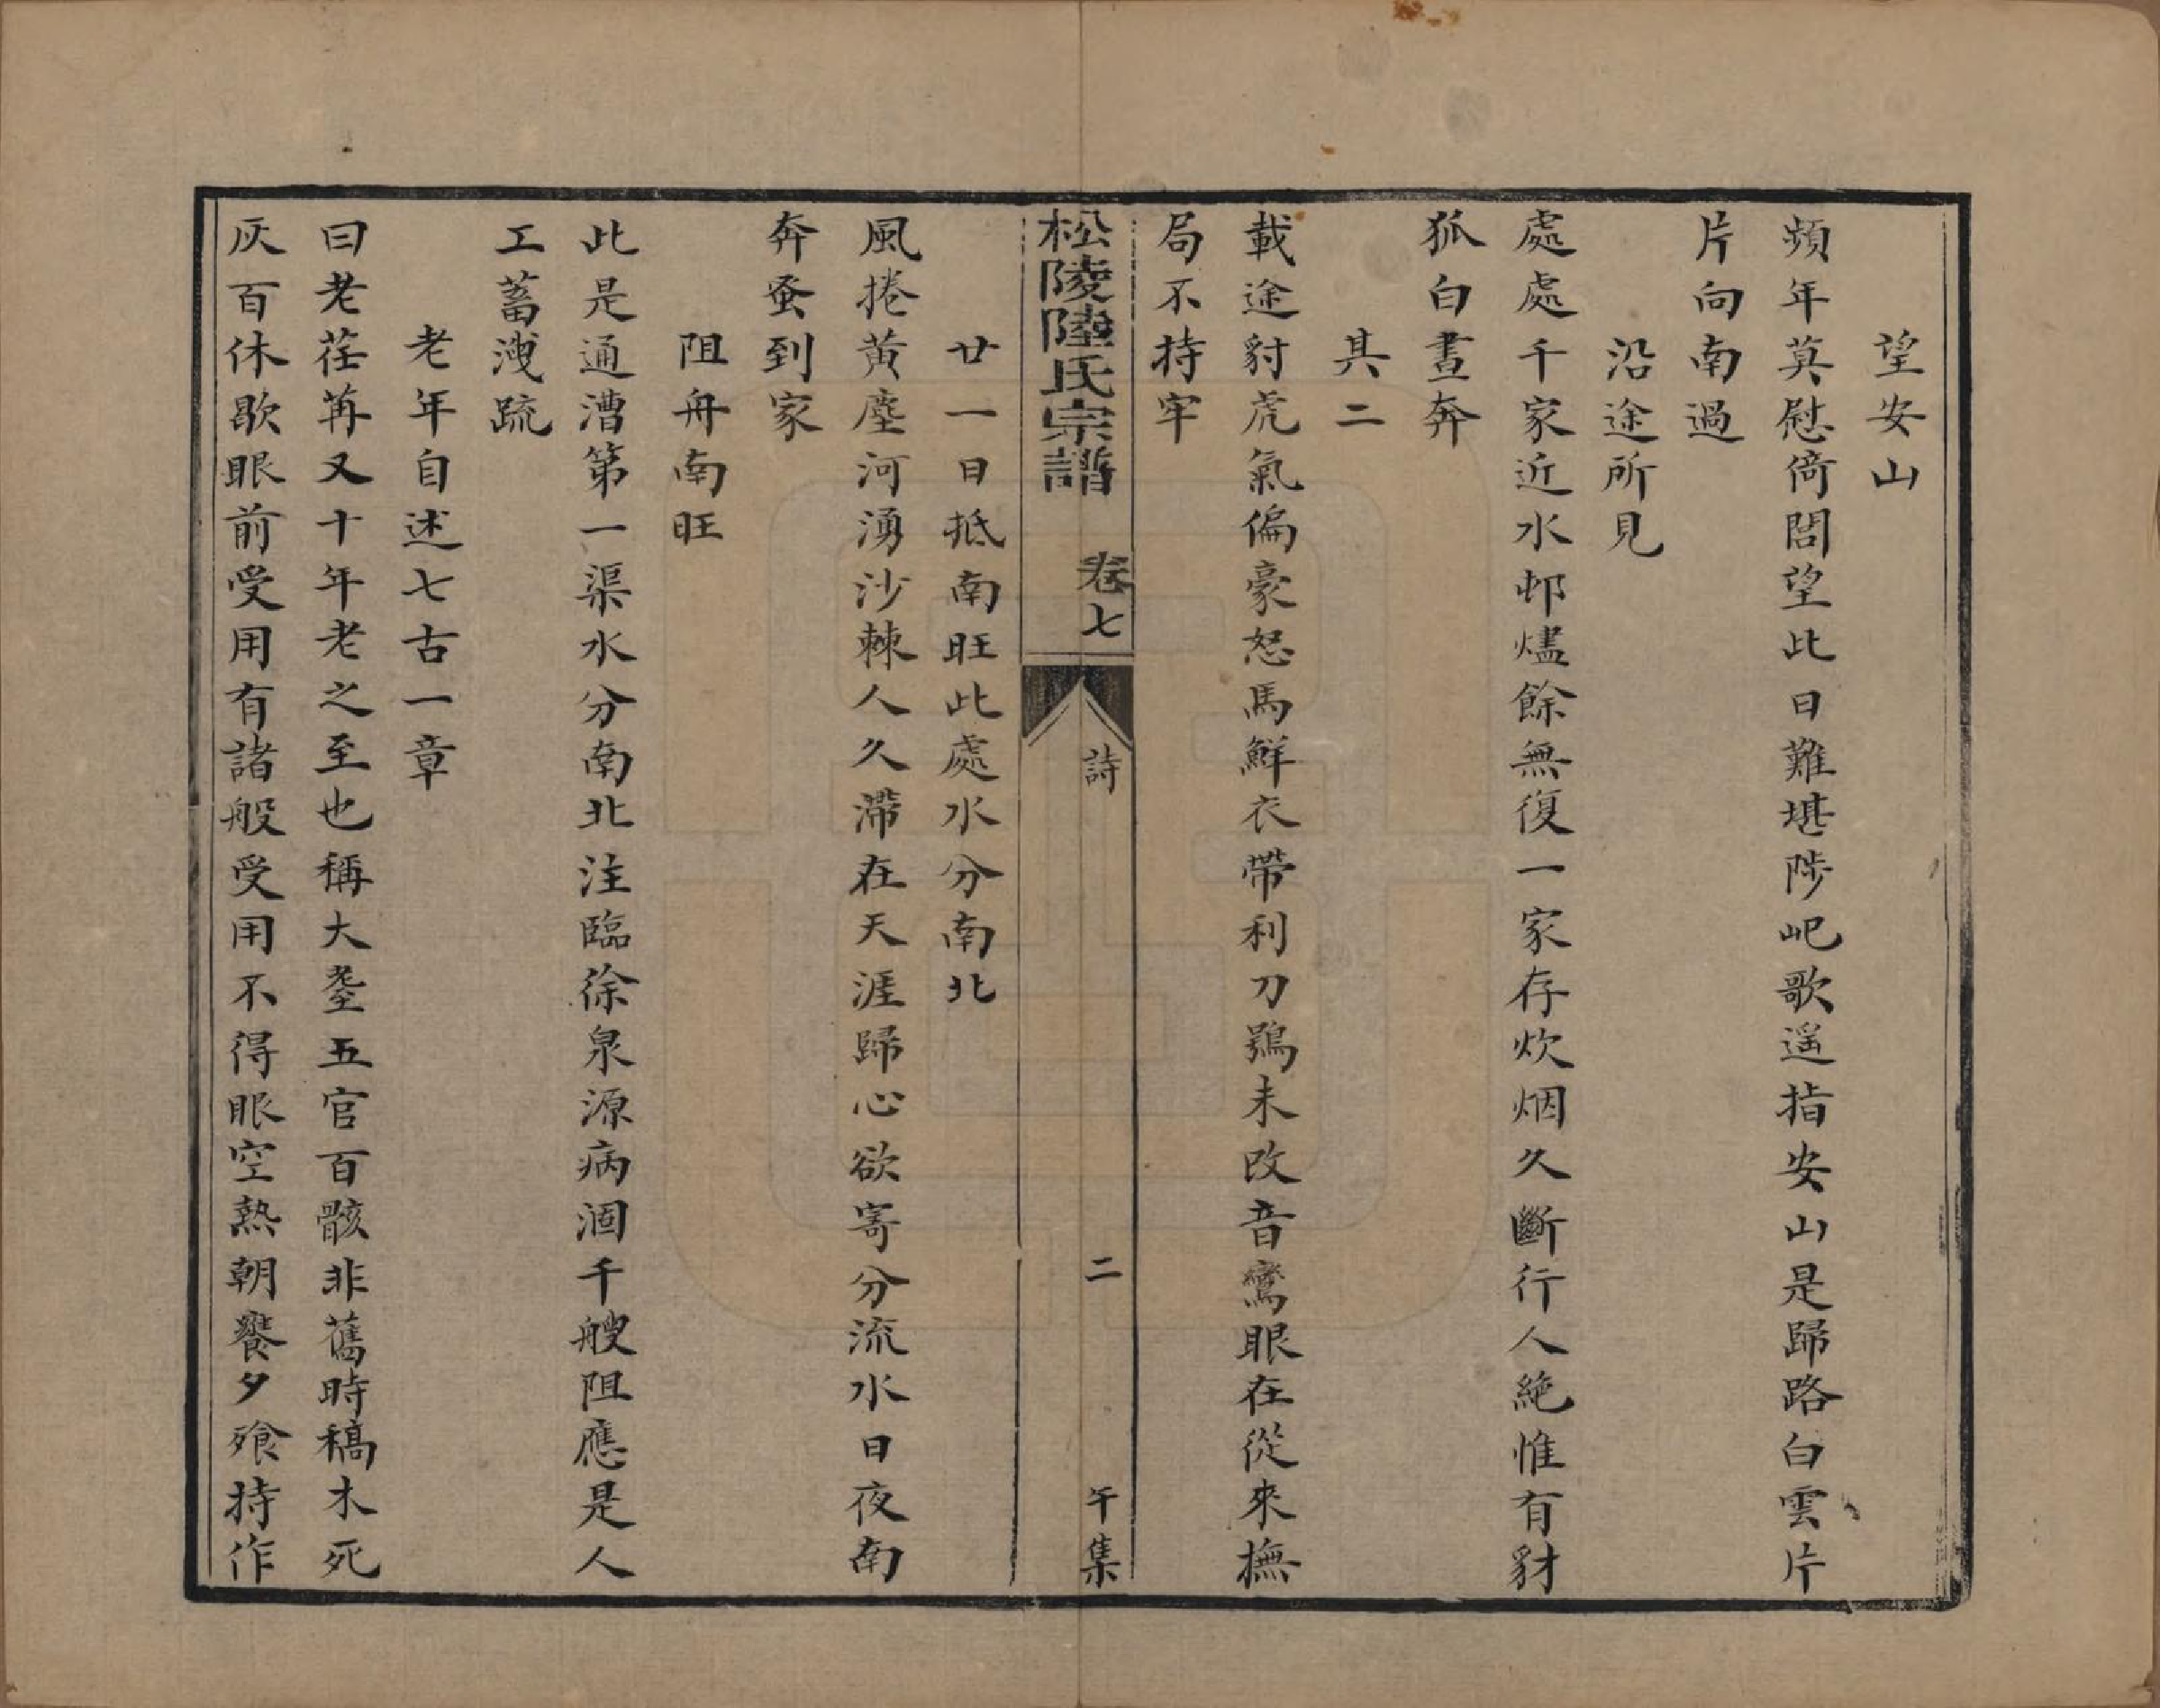 望安山
頻年莫慰倚閭望此日難堪陟屺歌遥指安山是歸路白雲片
片向南過
沿途所見
處處千家近水邨燼餘無復一家存炊烟久斷行人絶惟有豺
狐白晝奔
其二
載途豺虎氣偏豪怒馬鮮衣帶利刀鴞未改音鸞眼在從來撫
局不持牢
松陵陸氏宗譜 卷七 詩 二 午集
廿一日抵南旺此處水分南北
風捲黃塵河湧沙棘人久滯在天涯歸心欲寄分流水日夜南
奔蚤到家
阻舟南旺
此是通漕第一渠水分南北注臨徐泉源病涸千艘阻應是人
工蓄洩疏
老年自述七古一章
曰老荏苒又十年老之至也稱大耋五官百骸非舊時稿木死
灰百休歇眼前受用有諸般受用不得眼空熱朝饔夕飱持作